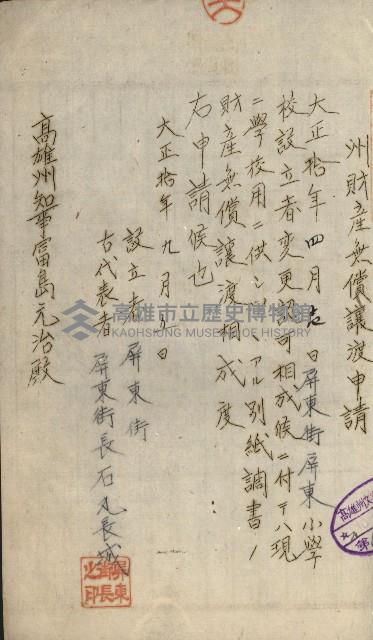 州財産無償讓渡申請
大正拾年四月 日屏東街屏東小學
校設立者変更認可相成候ニ付テハ現
ニ學校用ニ供シ アル別紙調書ノ
財産無償讓渡相成度
右申請候也
大正拾年九月 日
設立者 屏東街
右代表者 屏東街長 石丸長城
高雄州知事富島元治殿
屏東街長之印
高雄市立歷史博物館
KAOHSIUNG MUSEUM OF HISTORY
高雄州